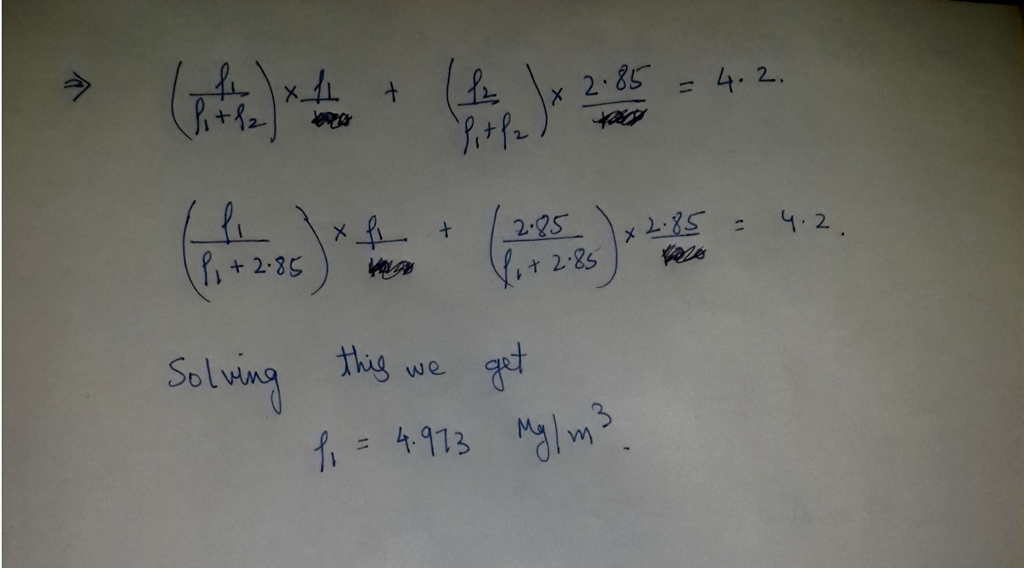 ⇒ (ρ₁/(ρ₁+ρ₂)) × ρ₁ + (ρ₂/(ρ₁+ρ₂)) × 2.85 = 4.2.
(ρ₁/(ρ₁+2.85)) × ρ₁ + (2.85/(ρ₁+2.85)) × 2.85 = 4.2.
Solving this we get
ρ₁ = 4.973 Mg/m³.